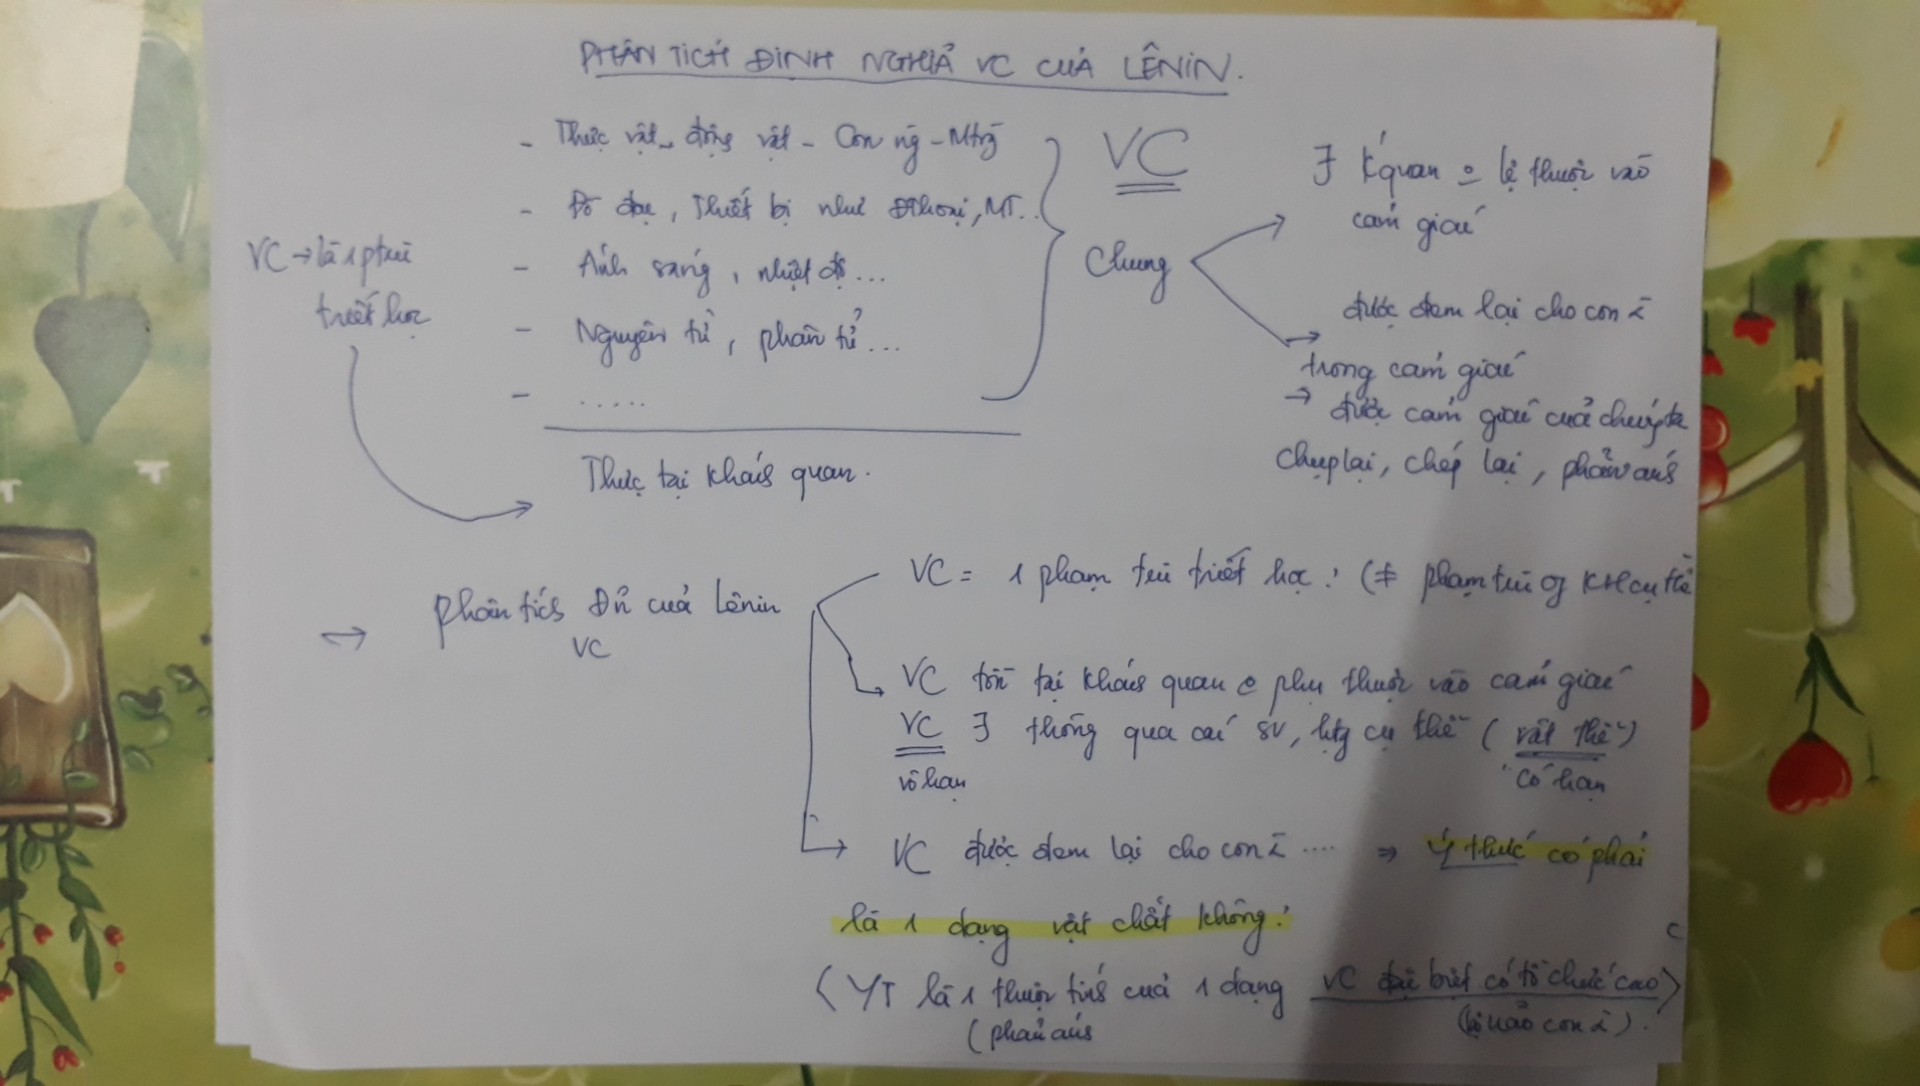 PHÂN TÍCH ĐỊNH NGHĨA VC CỦA LÊNIN.
- Thực vật - động vật - Con ng - Mtrg
- Đồ đạc, Thiết bị như Đthoại, MT..
- Ánh sáng, nhiệt độ...
- Nguyên tử, phân tử...
- .....
Thực tại khách quan.
VC → là 1 phtrù
triết học
VC
Chung
∃ K'quan lệ thuộc vào
cảm giác
được đem lại cho con
trong cảm giác
→ được cảm giác của chúng ta
chụp lại, chép lại, phản ánh
Phân tích ĐN của Lênin
VC
VC = 1 phạm trù triết học : (≠ phạm trù KH cụ thể
VC tồn tại khách quan phụ thuộc vào cảm giác
VC ∃ thông qua các sv, htg cụ thể (vật thể)
vô hạn
có hạn
VC được đem lại cho con .... ⇒ Ý thức có phải
là 1 dạng vật chất không?
(YT là 1 thuộc tính của 1 dạng VC đặc biệt có tổ chức cao)
(phản ánh
(bộ não con ).